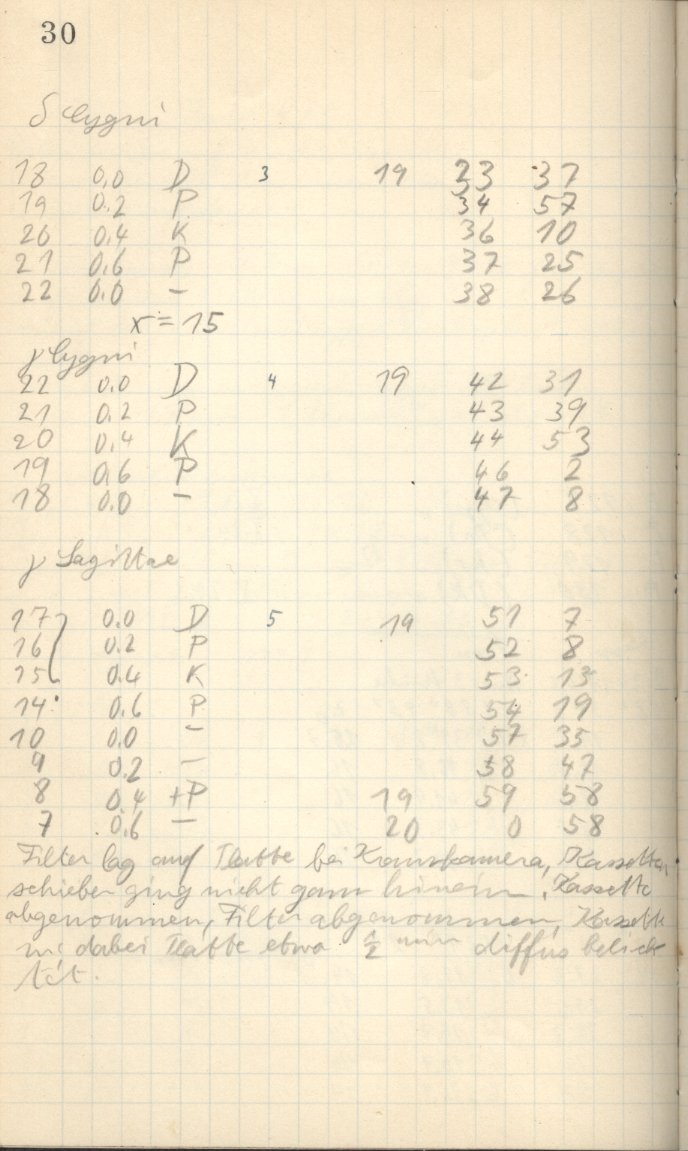 30
δ Cygni
18 0.0 D 3 19 33 37
19 0.2 P 34 57
20 0.4 K 36 10
21 0.6 P 37 25
22 0.0 – 38 26
x = 15
γ Cygni
22 0.0 D 4 19 42 31
21 0.2 P 43 39
20 0.4 K 44 53
19 0.6 P 46 2
18 0.0 – 47 8
γ Sagittae
17 0.0 D 5 19 51 7
16 0.2 P 52 8
15 0.4 K 53 13
14 0.6 P 54 19
10 0.0 – 57 35
9 0.2 – 58 47
8 0.4 +P 19 59 58
7 0.6 – 20 0 58
Filter lag auf Platte bei Kamera, Kassetten
schieber ging nicht ganz hinein. Kassette
abgenommen, Filter abgenommen, Kassette
dabei Platte etwa ½ min diffus belich
tet.